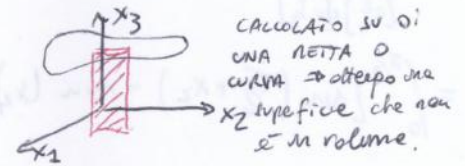 x3
CALCOLATO SU DI
UNA RETTA O
CURVA ⇒ ottengo una
x2 superficie che non
è un volume.
x1